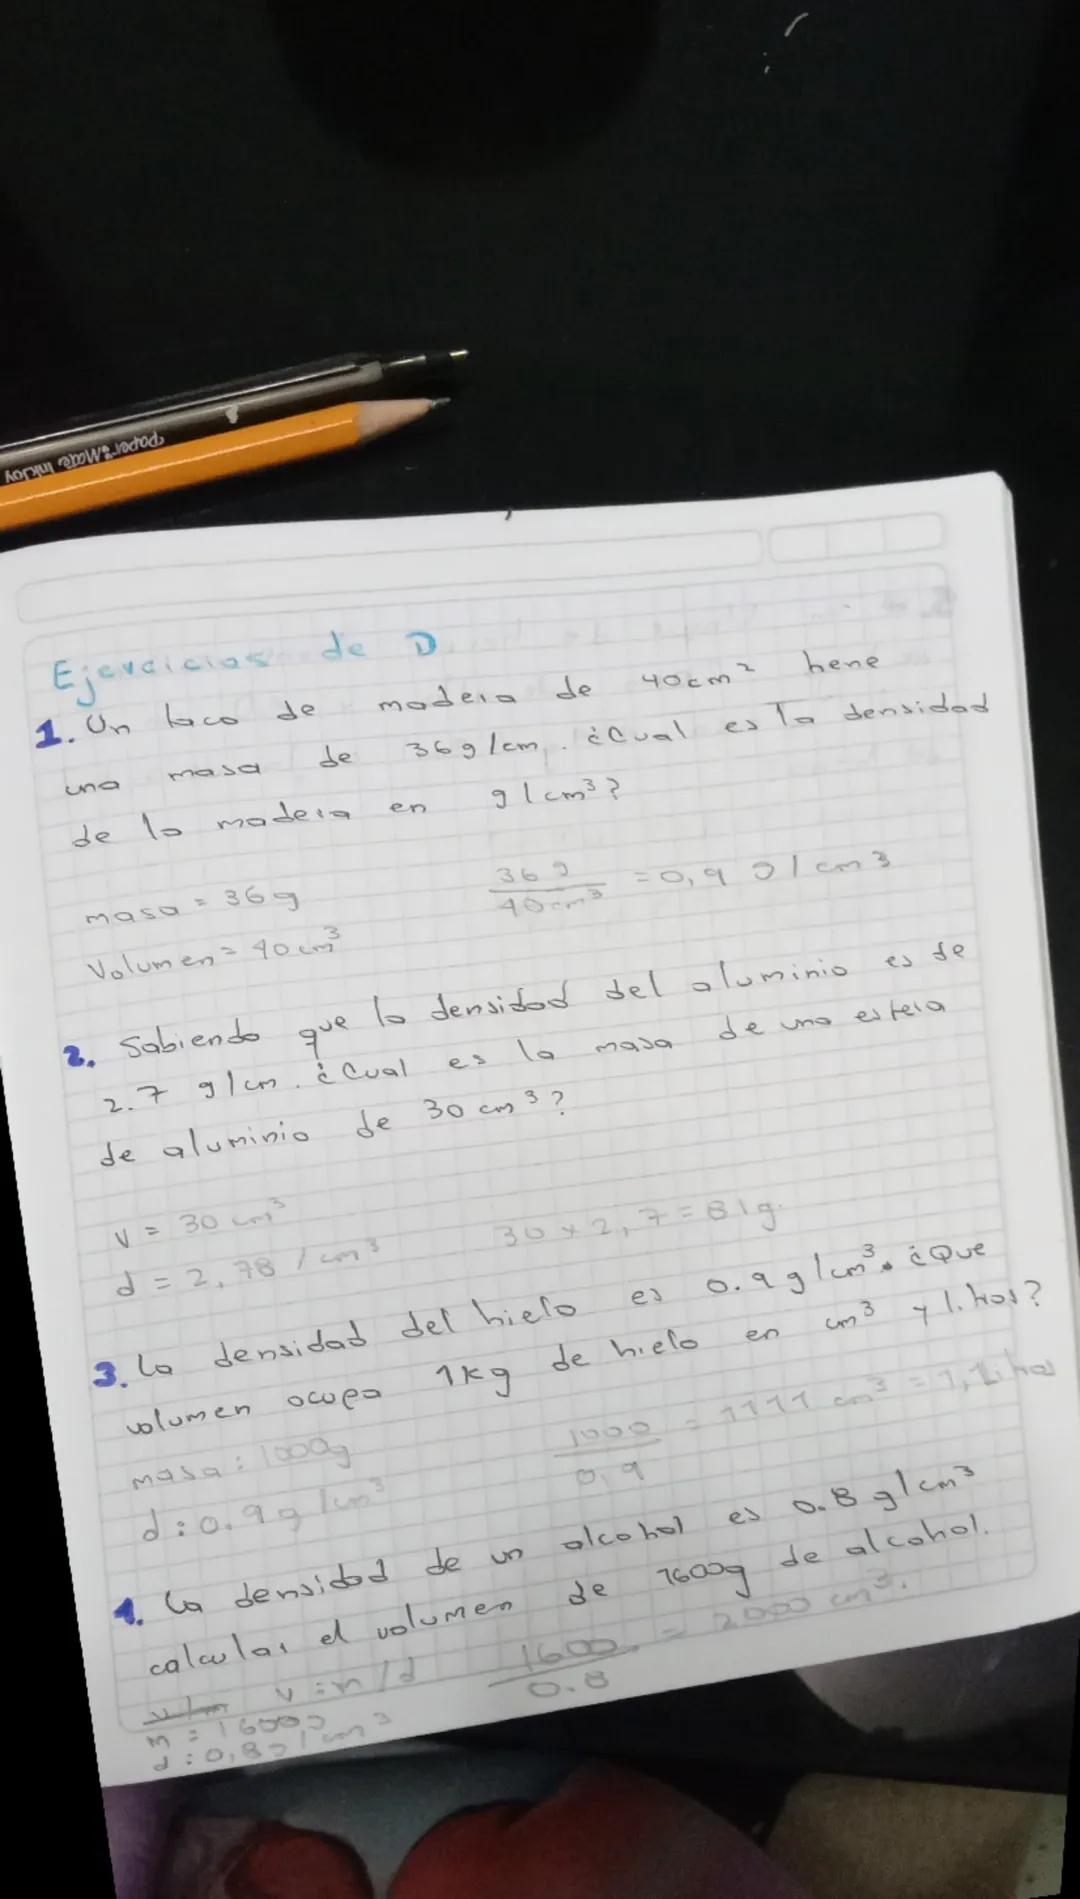 paper:Mate InkJoy
Ejercicios de D
1. Un taco de madera de 40cm² tiene
una masa de 36g/cm. ¿Cual es la densidad
de la madera en g/cm³?
masa = 36g
36g/40cm³ = 0,9 g/cm3
Volumen = 40cm³
2. Sabiendo que la densidad del aluminio es de
2.7 g/cm. ¿Cual es la masa de una esfera
de aluminio de 30 cm³?
V = 30 cm³
30 x 2,7 = 81g.
d = 2,78 / cm³
3. La densidad del hielo es 0.9 g/cm³. ¿Que
volumen ocupa 1kg de hielo en cm³ y litros?
masa: 1000g
1000/0,9 = 1111 cm³ = 1,1litros
d: 0.9g/cm³
4. La densidad de un alcohol es 0.8 g/cm³
calcular el volumen de 1600g de alcohol.
v=m/d
1600/0.8 = 2000 cm³.
m = 1600g
d: 0,8g/cm³